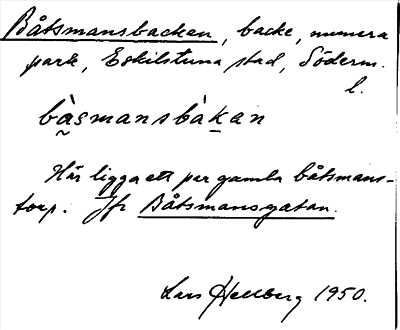 Båtsmansbacken, backe, numera
park, Eskilstuna stad, Söderm.
l.
bàsmansbàkan
Här ligga ett par gamla båtsmans-
torp. Jfr Båtsmansgatan.
Lars Hellberg 1950.